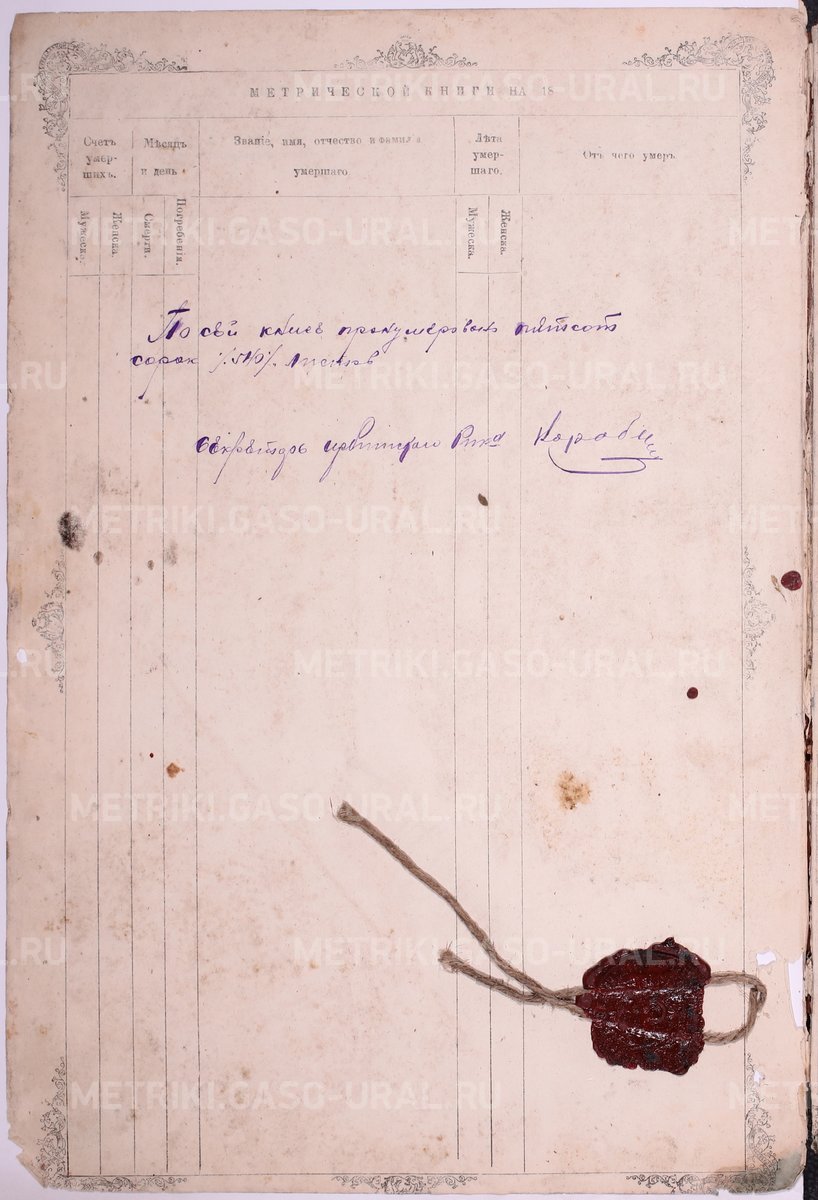 МЕТРИЧЕСКОЙ КНИГИ НА 18
Счетъ умер- шихъ.
Мѣсяцъ и день
Званіе, имя, отчество и фамилія умершаго
Лѣта умер- шаго.
Отъ чего умеръ
Мужеска.
Женска.
Смерти.
Погребенія.
Мужеска.
Женска.
По сей книге пронумеровано пятьсот
сорок /540/ листов
Секретарь Рика
METRIKI.GASO-URAL.RU